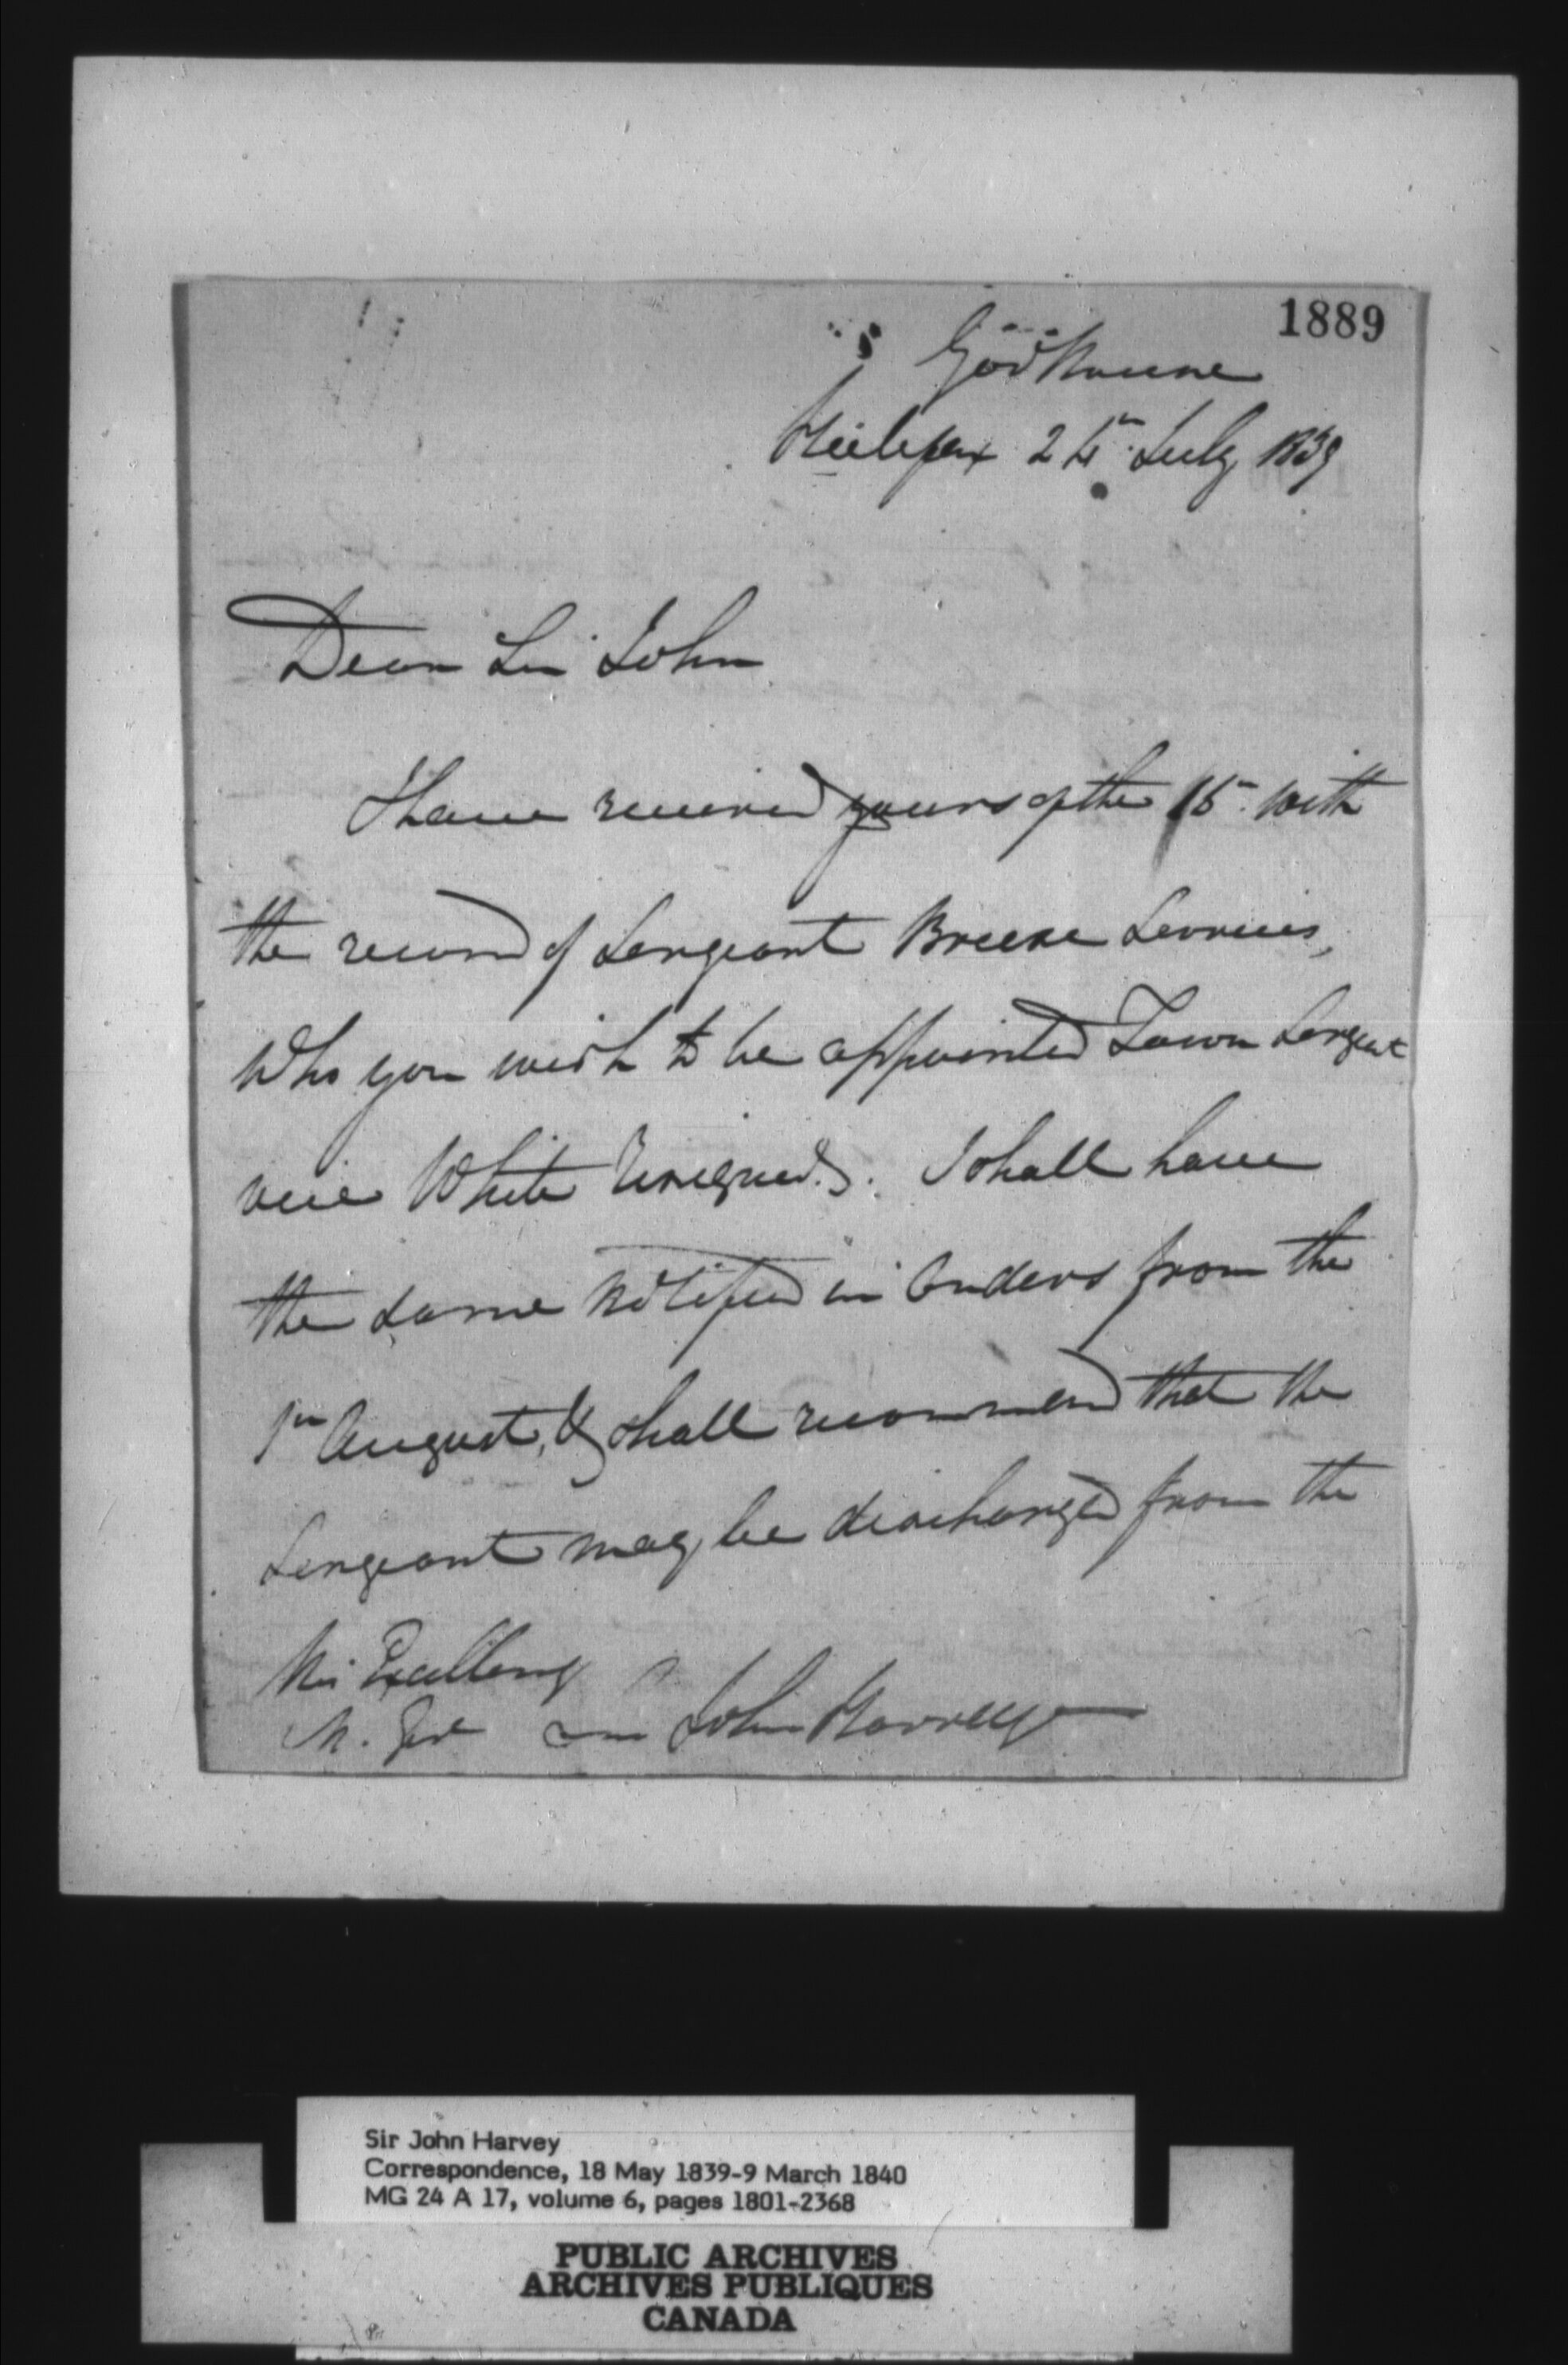 1889
Gov House
Halifax 24th July 1839
Dear Sir John
I have received yours of the 15th with
the record of Sergeant Breeze Services,
Who you wish to be appointed Town Sergeant
vice White resigned. I shall have
the same notified in Orders from the
1st August, & shall recommend that the
Sergeant may be discharged from the
His Excellency
M. Gen Sir John Harvey
Sir John Harvey
Correspondence, 18 May 1839-9 March 1840
MG 24 A 17, volume 6, pages 1801-2368
PUBLIC ARCHIVES
ARCHIVES PUBLIQUES
CANADA